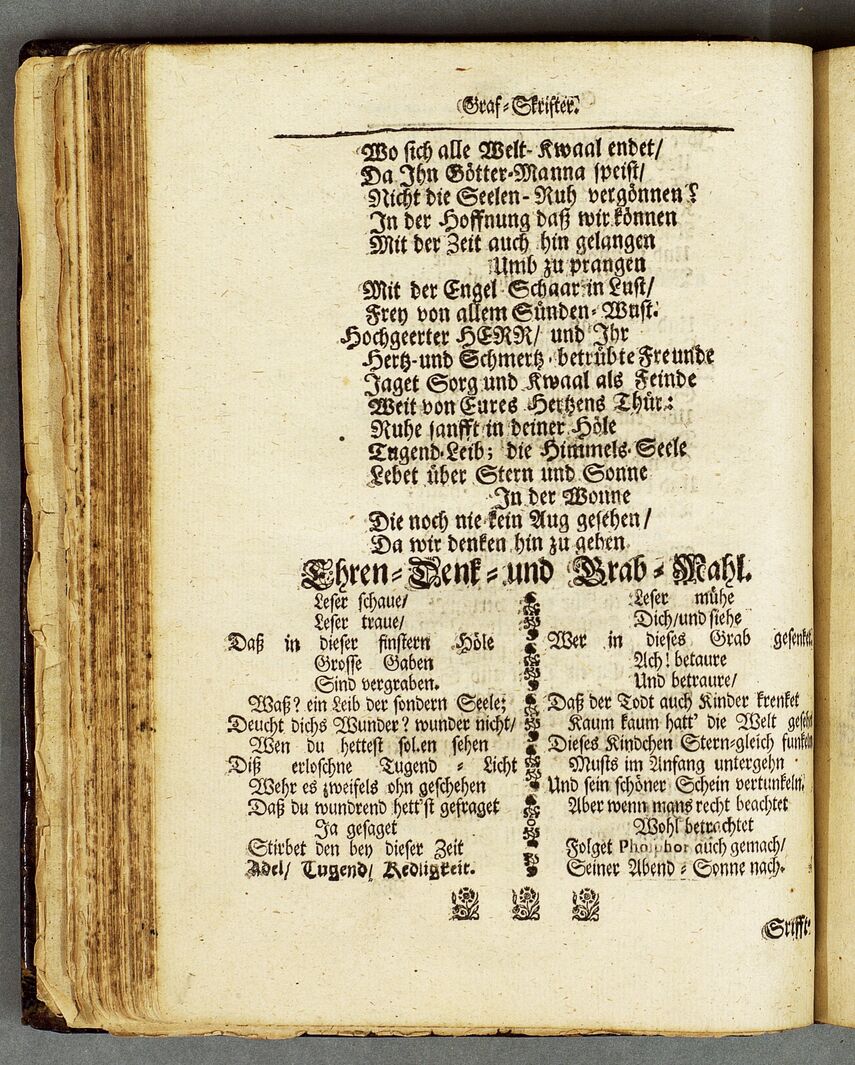 Graf-Skrifter.
Wo sich alle Welt-Kwaal endet/
Da Ihn Götter-Manna speist/
Nicht die Seelen-Ruh vergönnen?
In der Hoffnung daß wir können
Mit der Zeit auch hin gelangen
Umb zu prangen
Mit der Engel Schaar in Lust/
Frey von allem Sünden-Wust.
Hochgeerter HERR/ und Ihr
Hertz-und Schmertz-betrübte Freunde
Jaget Sorg und Kwaal als Feinde
Weit von Eures Hertzens Thür.:
Ruhe sanfft in deiner Höle
Tugend-Leib; die Himmels-Seele
Lebet über Stern und Sonne
In der Wonne
Die noch nie kein Aug gesehen/
Da wir denken hin zu gehen
Ehren-Denk-und Grab-Mahl.
Leser schaue/
Leser traue/
Daß in dieser finstern Höle
Grosse Gaben
Sind vergraben.
Waß? ein Leib der sondern Seele;
Deucht dichs Wunder? wunder nicht/
Wen du hettest sol.en sehen
Diß erloschne Tugend-Licht
Wehr es zweifels ohn geschehen
Daß du wundrend hett'st gefraget
Ja gesaget
Stirbet den bey dieser Zeit
Adel/ Tugend/ Redligkeit.
Leser mühe
Dich/und siehe
Wer in dieses Grab gesenket
Ach! betaure
Und betraure/
Daß der Todt auch Kinder krenket
Kaum kaum hatt' die Welt gesehn
Dieses Kindchen Stern-gleich funkeln
Musts im Anfang untergehn
Und sein schöner Schein vertunkeln.
Aber wenn mans recht beachtet
Wohl betrachtet
Folget Phosphor auch gemach/
Seiner Abend-Sonne nach.
Srifft